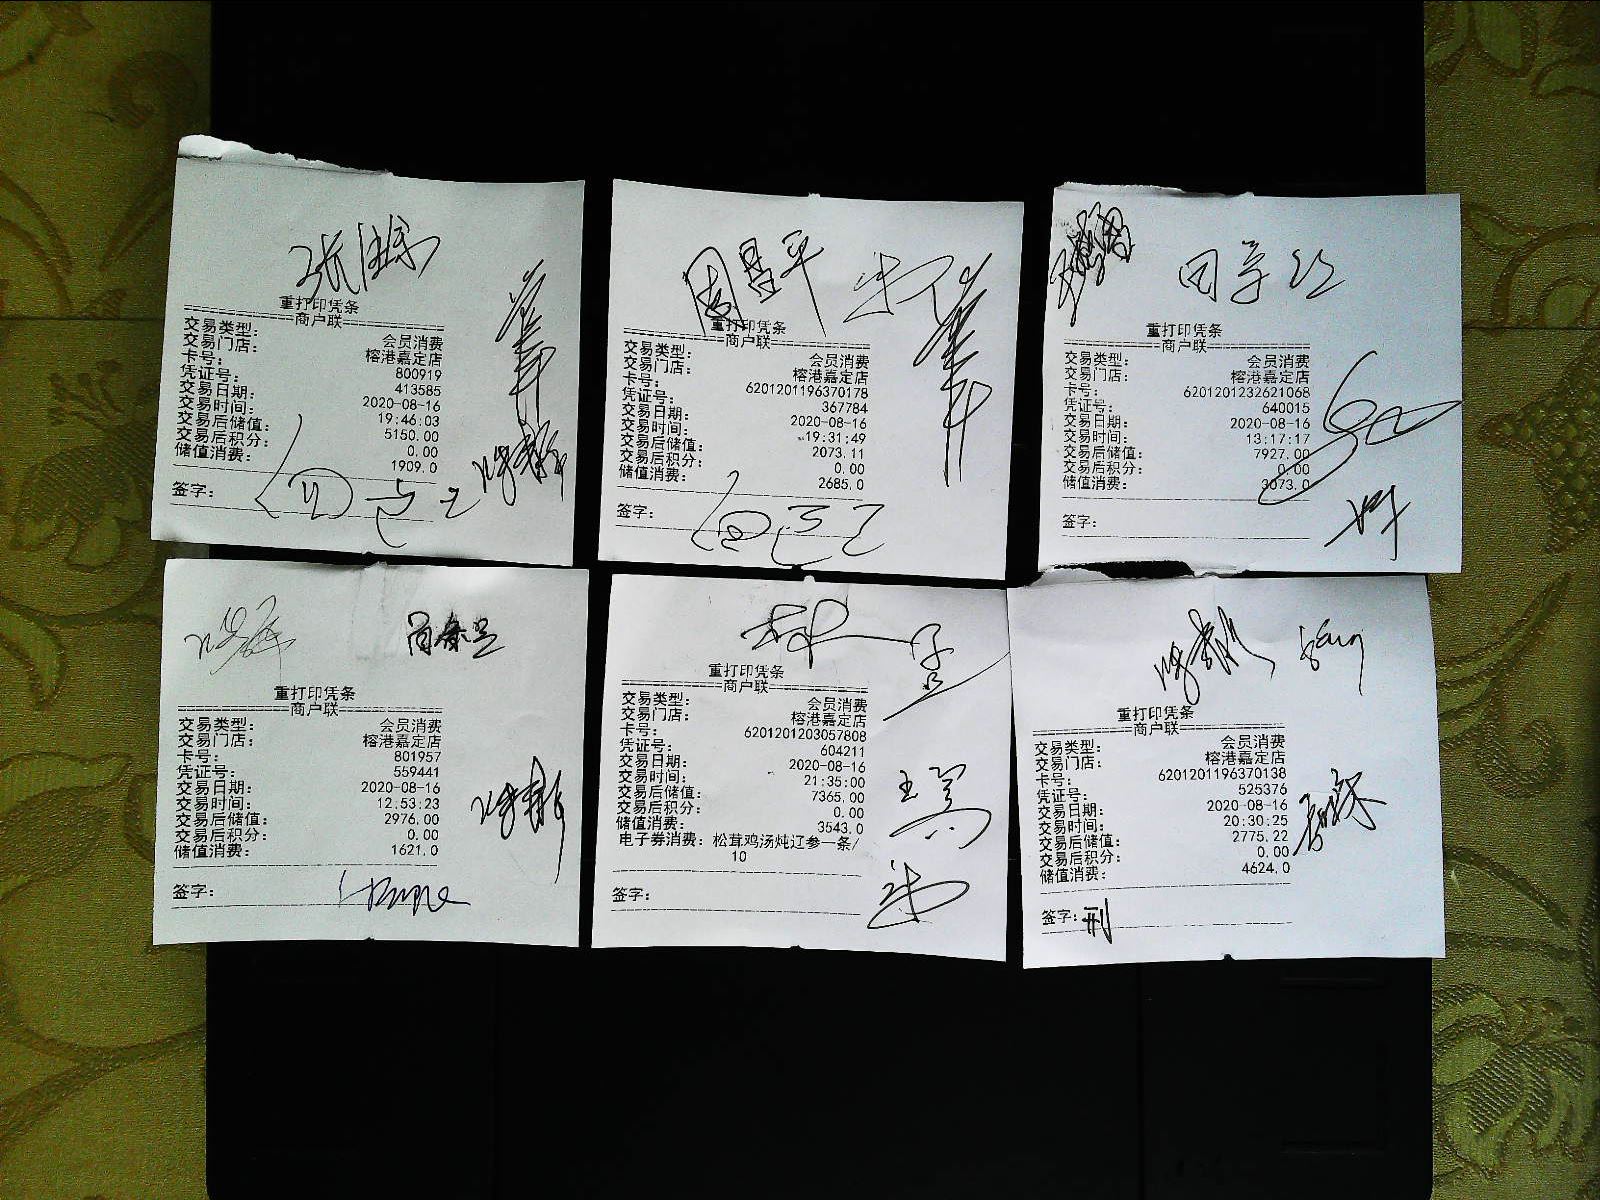 重打印凭条
商户联
交易类型: 会员消费
交易门店: 榕港嘉定店
卡号: 800919
凭证号: 413585
交易日期: 2020-08-16
交易时间: 19:46:03
交易后储值: 5150.00
交易后积分: 0.00
储值消费: 1909.0
签字:
周星平
重打印凭条
商户联
交易类型: 会员消费
交易门店: 榕港嘉定店
卡号: 6201201196370178
凭证号: 367784
交易日期: 2020-08-16
交易时间: 19:31:49
交易后储值: 2073.11
交易后积分: 0.00
储值消费: 2685.0
签字:
重打印凭条
商户联
交易类型: 会员消费
交易门店: 榕港嘉定店
卡号: 6201201232621068
凭证号: 640015
交易日期: 2020-08-16
交易时间: 13:17:17
交易后储值: 7927.00
交易后积分: 0.00
储值消费: 3073.0
签字:
重打印凭条
商户联
交易类型: 会员消费
交易门店: 榕港嘉定店
卡号: 801957
凭证号: 559441
交易日期: 2020-08-16
交易时间: 12:53:23
交易后储值: 2976.00
交易后积分: 0.00
储值消费: 1621.0
签字:
重打印凭条
商户联
交易类型: 会员消费
交易门店: 榕港嘉定店
卡号: 6201201203057808
凭证号: 604211
交易日期: 2020-08-16
交易时间: 21:35:00
交易后储值: 7365.00
交易后积分: 0.00
储值消费: 3543.0
电子券消费: 松茸鸡汤炖辽参一条/
10
签字:
重打印凭条
商户联
交易类型: 会员消费
交易门店: 榕港嘉定店
卡号: 6201201196370138
凭证号: 525376
交易日期: 2020-08-16
交易时间: 20:30:25
交易后储值: 2775.22
交易后积分: 0.00
储值消费: 4624.0
签字: